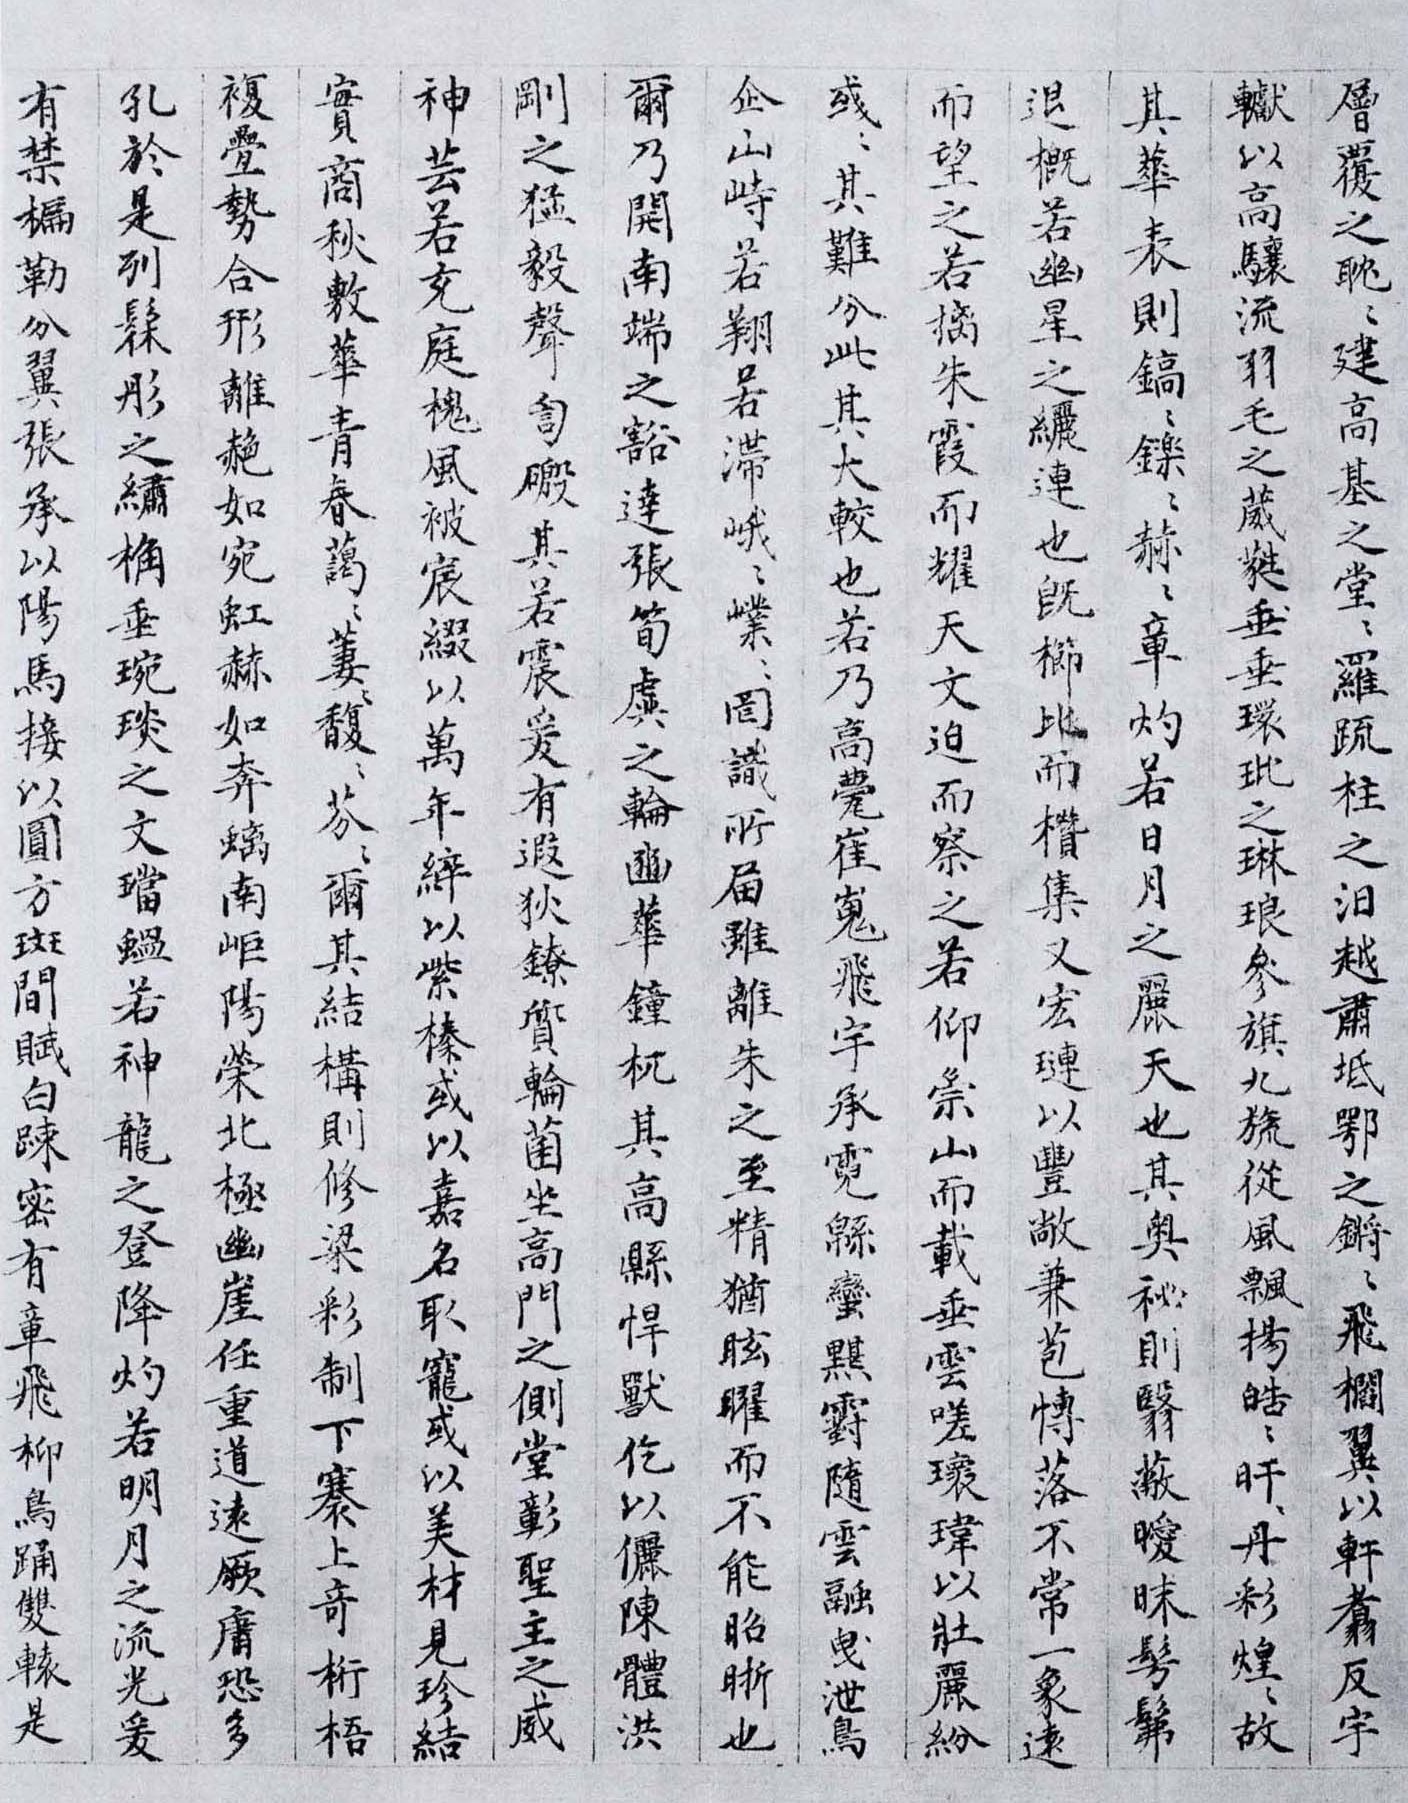 層覆之耽〻建高基之堂〻羅疏柱之汩越肅坻鄂之鏘〻飛櫩翼以軒翥反宇
轥以高驤流羽毛之葳蕤垂垂環玭之琳琅參旗九旒從風飄揚皓〻旰〻丹彩煌〻故
其華表則鎬〻鑠〻赫〻章灼若日月之麗天也其奧秘則翳蔽曖昧髣髴
退概若幽星之纚連也既櫛比而欑集又宏璉以豐敞兼苞慱落不常一象遠
而望之若摛朱霞而耀天文迫而察之若仰崇山而載垂雲嗟瓌瑋以壯麗紛
彧〻其難分此其大較也若乃高甍崔嵬飛宇承霓緜蠻黮䨴隨雲融曳泄鳥
企山峙若翔若滯峨〻嶫〻罔識所届雖離朱之至精猶眩曜而不能昭晣也
爾乃開南端之豁達張筍虡之輪豳華鐘杌其高縣悍獸仡以儷陳體洪
剛之猛毅聲訇磤其若震爰有遐狄鐐質輪菌坐高門之側堂彰聖主之威
神芸若充庭槐風被宸綴以萬年綷以紫榛或以嘉名取寵或以美材見珍結
實商秋敷華青春藹〻萋〻馥〻芬〻爾其結構則修梁彩制下褰上奇桁梧
複疊勢合形離赩如宛虹赫如奔螭南岠陽榮北極幽崖任重道遠厥庸恐多
孔於是列髹彤之繡桷垂琬琰之文璫蝹若神龍之登降灼若明月之流光爰
有禁楄勒分翼張承以陽馬接以圓方斑間賦白踈密有章飛枊鳥踊雙轅是